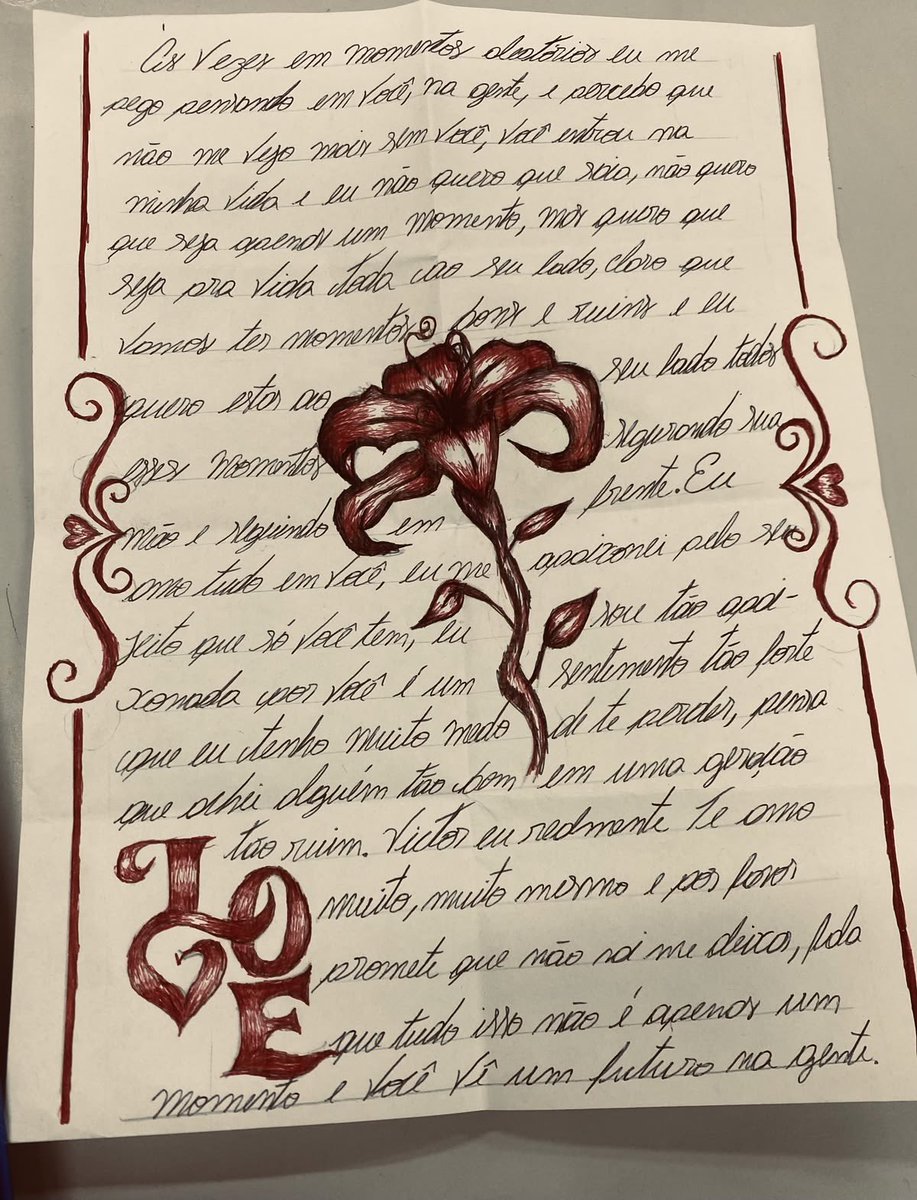 Às vezes em momentos aleatórios eu me
pego pensando em você, na gente, e percebo que
não me vejo mais sem você, você entrou na
minha vida e eu não quero que saia, não quero
que seja apenas um momento, mas quero que
seja pra vida toda ao seu lado, claro que
vamos ter momentos bons e ruins e eu
quero estar ao seu lado todos
esses momentos segurando sua
mão e seguindo em frente. Eu
amo tudo em você, eu me apaixonei pelo seu
jeito que só você tem, eu sou tão apai-
xonada por você é um sentimento tão forte
que eu tenho muito medo de te perder, pensa
que achei alguém tão bom em uma geração
tão ruim. Victor eu realmente Te amo
muito, muito mesmo e por favor
promete que não vai me deixar, fala
que tudo isso não é apenas um
momento e você vê um futuro na gente.
LOVE